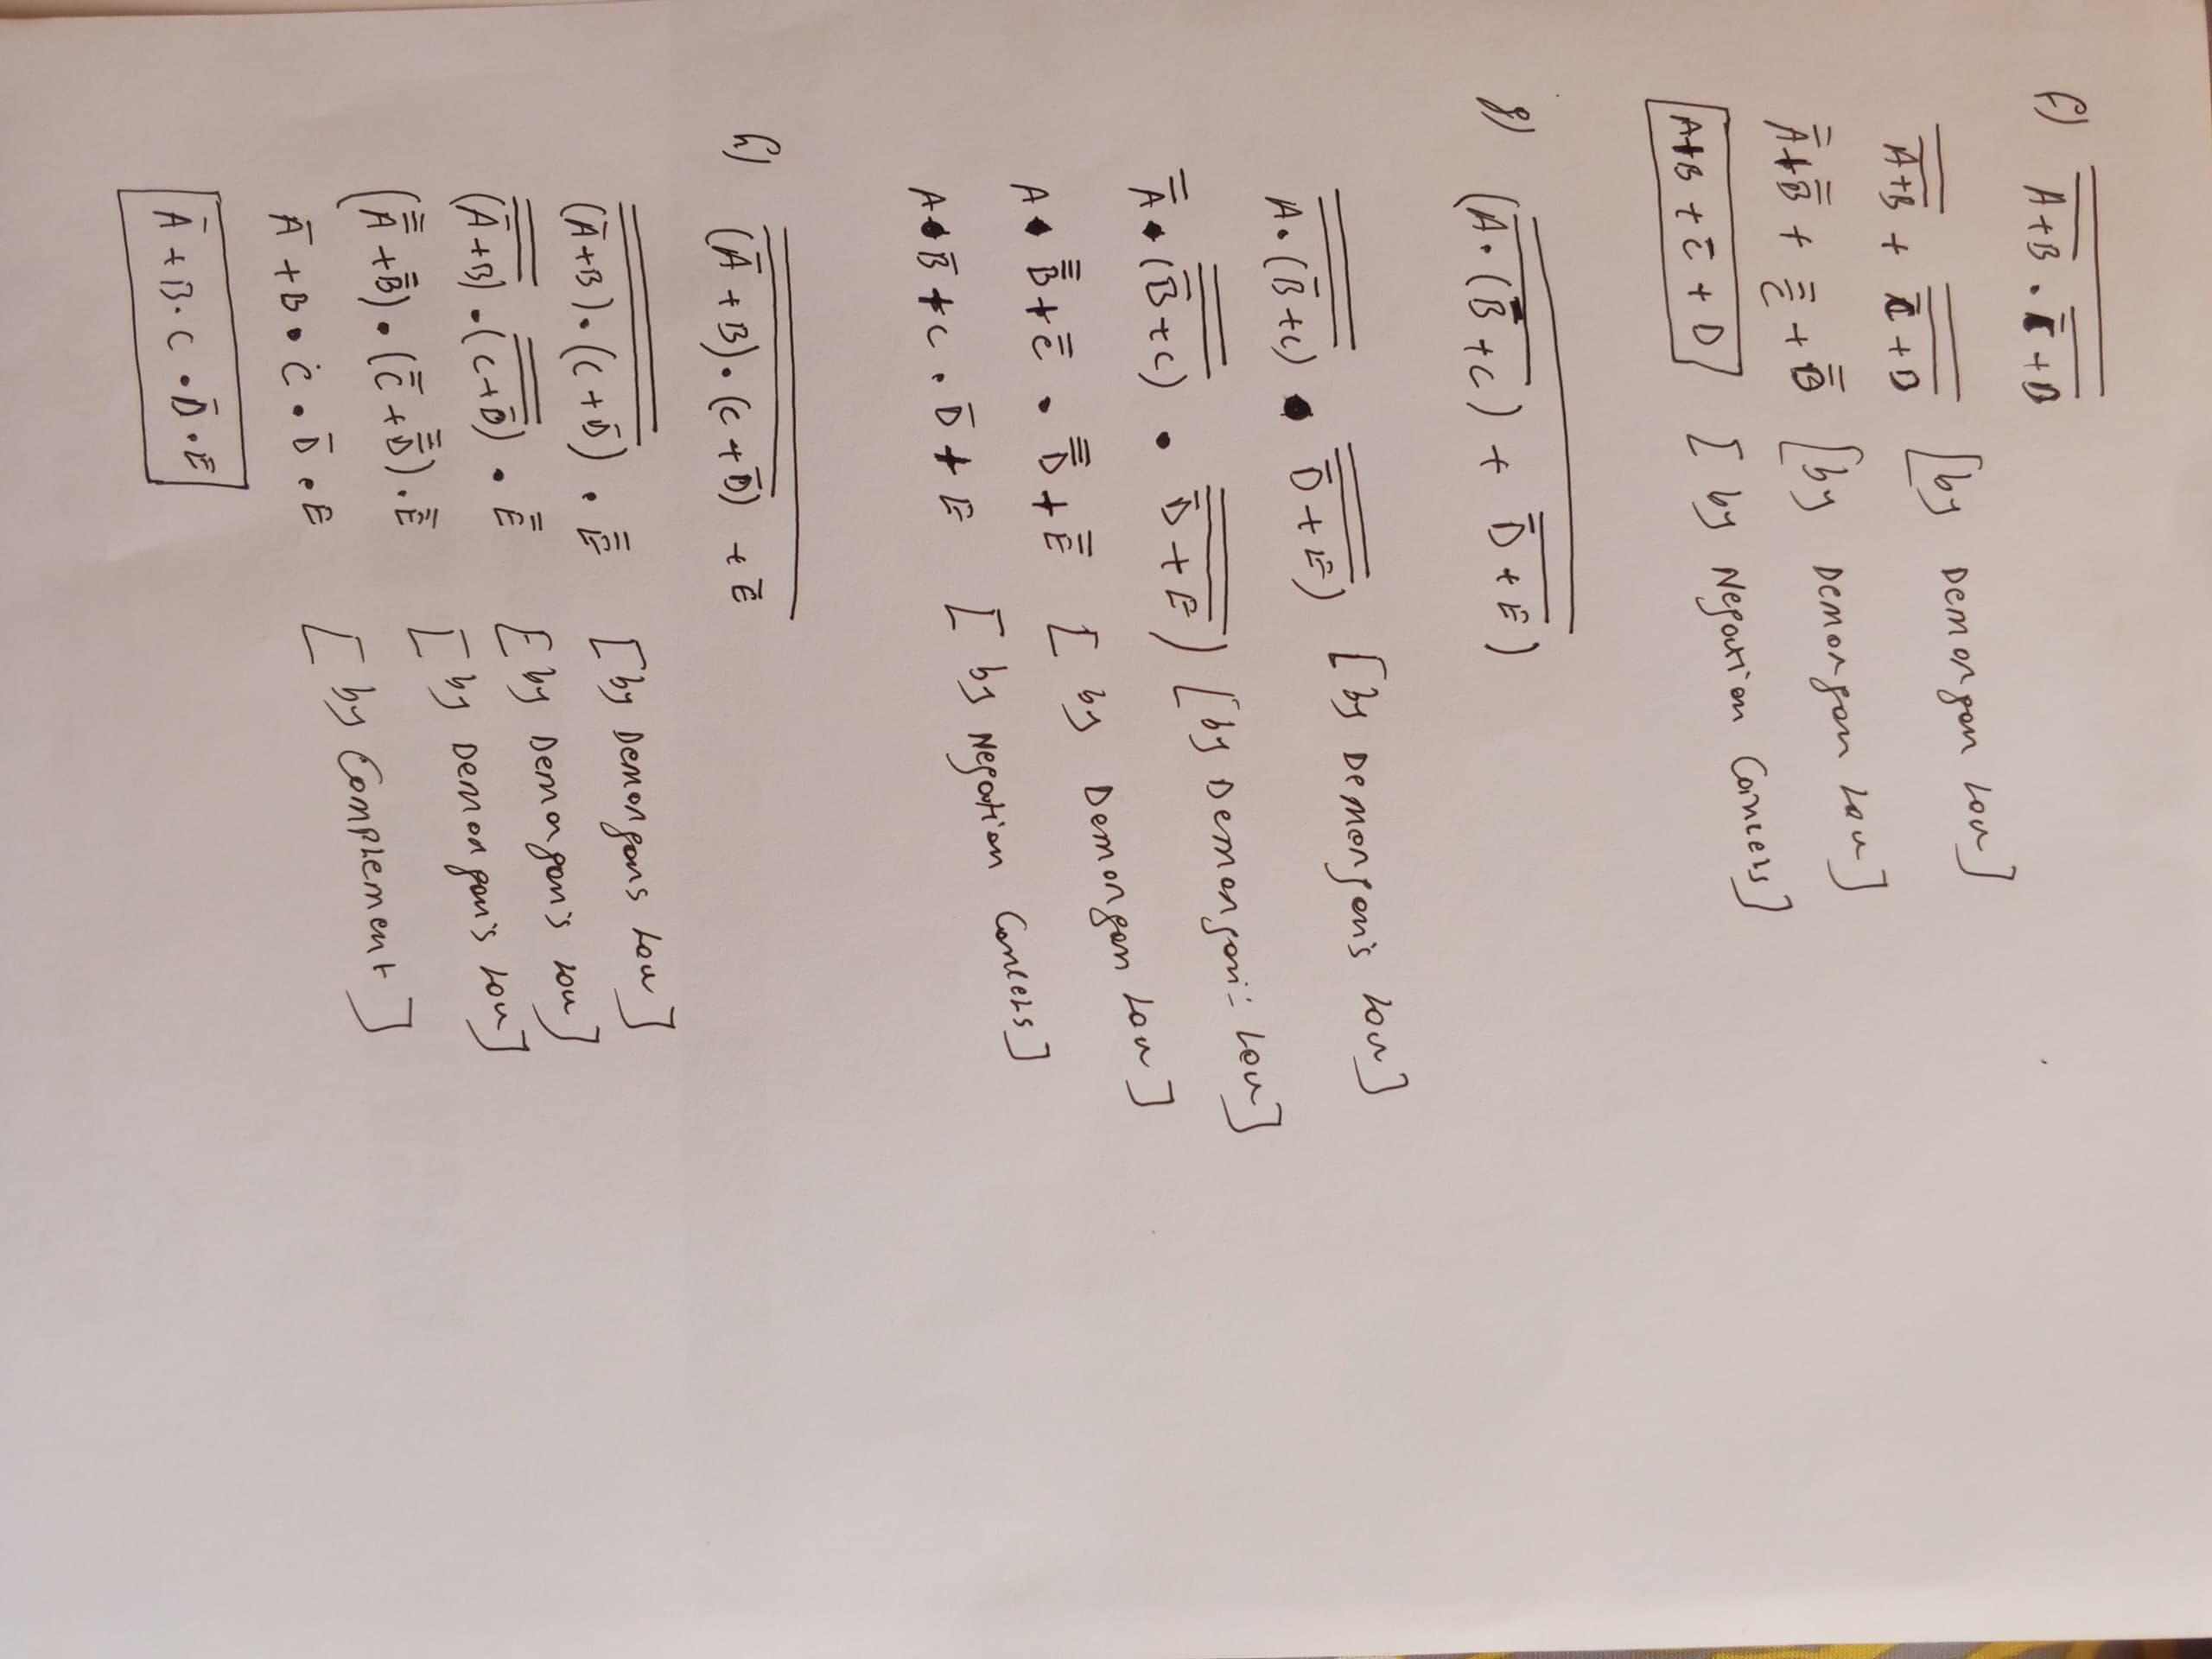 f) \overline{\overline{A+B} . \overline{\bar{C}+D}}
\overline{\overline{A+B}} + \overline{\overline{\bar{C}+D}} [by Demorgan Law]
\bar{\bar{A}}+\bar{\bar{B}} + \bar{\bar{\bar{C}}} + \bar{\bar{D}} [by Demorgan Law]
A+B + \bar{C} + D [by Negation Cancels]
g) \overline{(\overline{A.(\bar{B}+C)} + \overline{\bar{D}+E})}
\overline{\overline{A.(\bar{B}+C)}} . \overline{\overline{\bar{D}+E}}) [by Demorgan's Law]
\bar{\bar{A}} . \overline{\overline{(\bar{B}+C)}} . \overline{\overline{\bar{D}+E}}) [by Demorgan's Law]
A . \bar{\bar{\bar{B}}}+\bar{\bar{C}} . \bar{\bar{\bar{D}}}+\bar{\bar{E}} [by Demorgan Law]
A . \bar{B}+C . \bar{D}+E [by Negation Cancels]
h) \overline{\overline{(\bar{A}+B).(C+\bar{D})} + \bar{E}}
\overline{\overline{(\bar{A}+B).(C+\bar{D})}} . \bar{\bar{E}} [by Demorgans Law]
\overline{\overline{(\bar{A}+B)}} . \overline{\overline{(C+\bar{D})}} . \bar{\bar{E}} [by Demorgan's Law]
(\bar{\bar{\bar{A}}}+\bar{\bar{B}}) . (\bar{\bar{C}}+\bar{\bar{\bar{D}}}) . \bar{\bar{E}} [by Demorgan's Law]
\bar{A} + B . C . \bar{D} . E [by Complement]
\bar{A} + B . C . \bar{D} . E